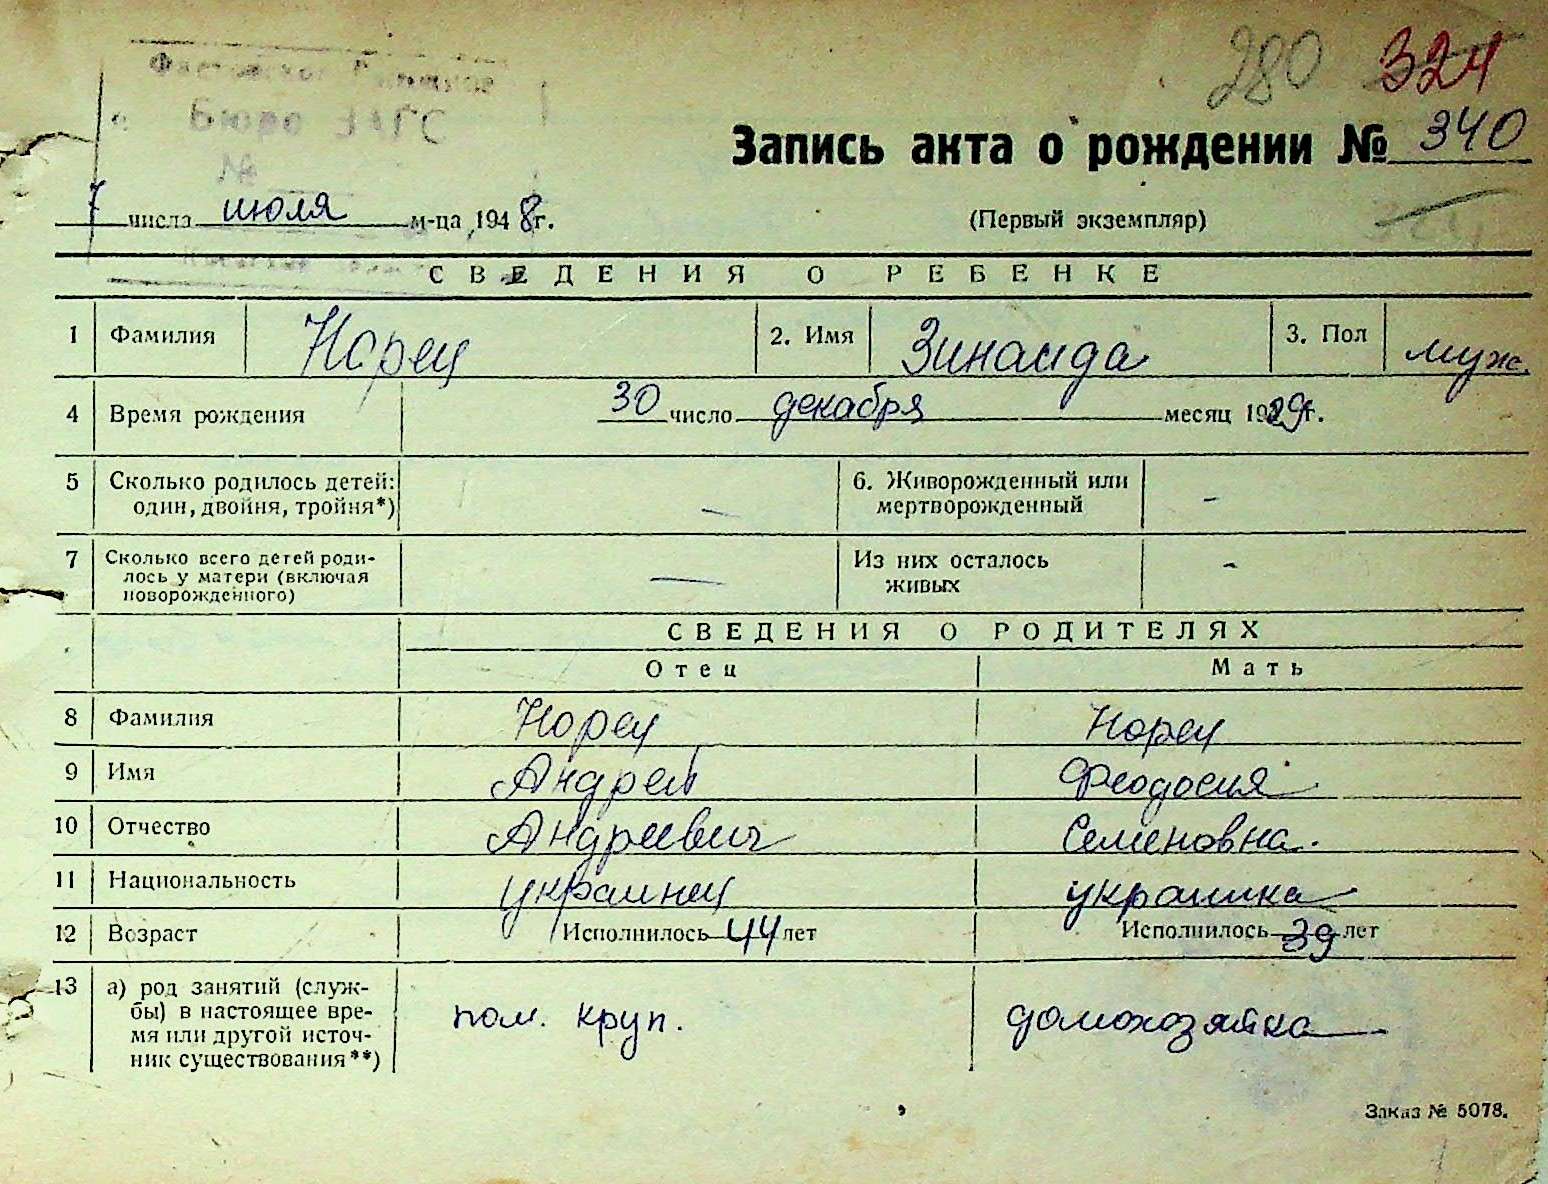 280 324
Бюро ЗАГС
№
Запись акта о рождении № 340
7 числа июля м-ца 1948г.
(Первый экземпляр)
324
СВЕДЕНИЯ О РЕБЕНКЕ
1 Фамилия Норец 2. Имя Зинаида 3. Пол муж.
4 Время рождения 30 число декабря месяц 1929г.
5 Сколько родилось детей: один, двойня, тройня*) — 6. Живорожденный или мертворожденный -
7 Сколько всего детей роди-
лось у матери (включая
новорожденного) — Из них осталось живых -
СВЕДЕНИЯ О РОДИТЕЛЯХ
Отец Мать
8 Фамилия Норец Норец
9 Имя Андрей Феодосия
10 Отчество Андреевич Семеновна.
11 Национальность украинец украинка
12 Возраст Исполнилось 44 лет Исполнилось 39 лет
13 а) род занятий (служ-
бы) в настоящее вре-
мя или другой источ-
ник существования**) пом. круп. домохозяйка
Заказ № 5078.